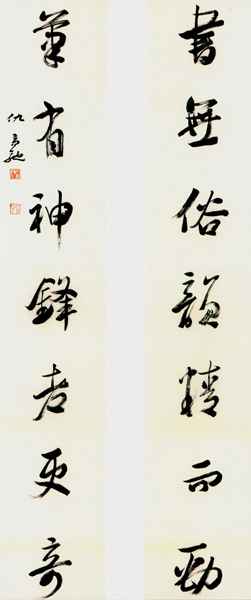 書無俗韻精而勁
筆有神鋒老更奇
仇高馳